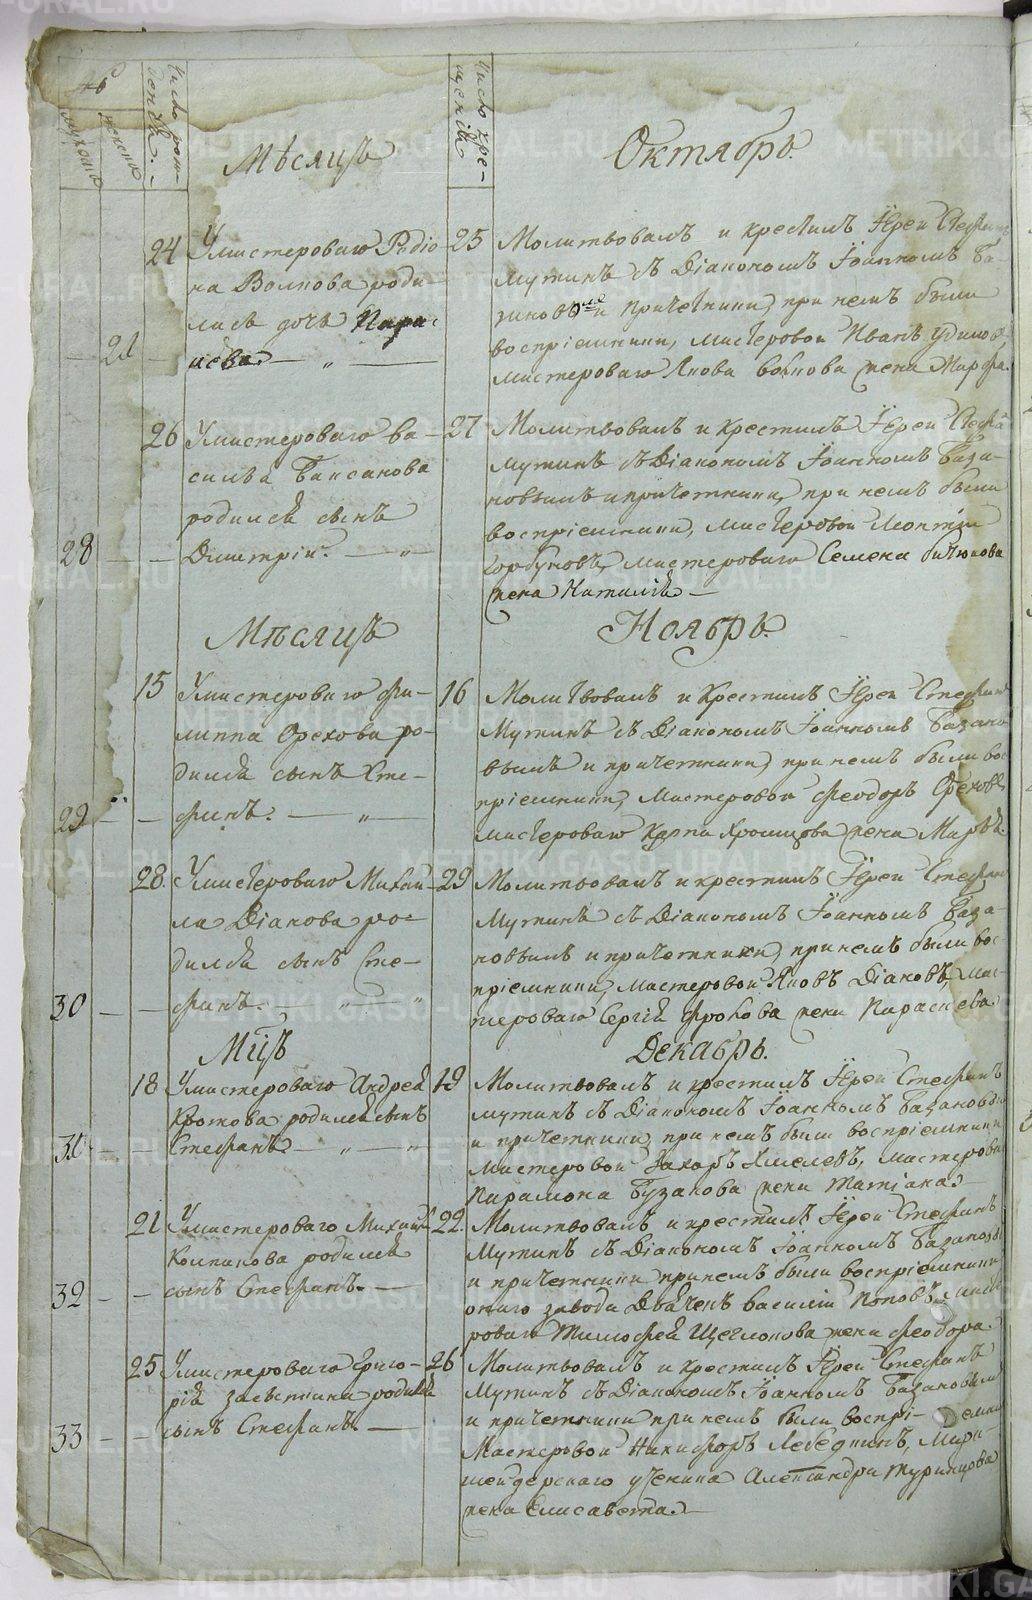 Число рож-
денія.
мужска
женска
Число кре-
щенія
Мѣсяцъ Октябрь.
24 У мастероваго Родіо-
на Волкова роди-
лась дочь Парас-
21 кева.
25 Молитвовалъ и крестилъ Іерей Стефанъ
Мутинъ съ Діакономъ Іоанномъ Ба-
зановымъ и причетники, при немъ были
воспріемники, мастеровой Иванъ
мастероваго Якова Волкова жена Марфа.
26 У мастероваго Ва-
силья Баксанова
родился сынъ
28 Дмитрій.
27 Молитвовалъ и крестилъ Іерей Стефанъ
Мутинъ съ Діакономъ Іоанномъ База-
новымъ и причетники, при немъ были
воспріемники, мастеровой Леонтій
Горбуновъ, мастероваго Семена Бичюкова
жена Наталія.
Мѣсяцъ Ноябрь.
15 У мастероваго Фи-
липпа Орехова ро-
дился сынъ Сте-
29 фанъ.
16 Молитвовалъ и крестилъ Іерей Стефанъ
Мутинъ съ Діакономъ Іоанномъ Базано-
вымъ и причетники, при немъ были вос-
пріемники, мастеровой Феодоръ Ореховъ,
мастероваго Карпа Хромцова жена Марья.
28 У мастероваго Михаи-
ла Діакова ро-
дился сынъ Сте-
30 фанъ.
29 Молитвовалъ и крестилъ Іерей Стефанъ
Мутинъ съ Діакономъ Іоанномъ База-
новымъ и причетники, при немъ были вос-
пріемники, мастеровой Яковъ Діаковъ, мас-
тероваго Сергія Фролова жена Параскева.
Мцъ Декабрь.
18 У мастероваго Андрея
Кротова родился сынъ
31 Стефанъ.
19 Молитвовалъ и крестилъ Іерей Стефанъ
Мутинъ съ Діакономъ Іоанномъ Базановым
и причетники, при немъ были воспріемники
мастеровой Захаръ Хмелевъ, мастероваго
Парамона Бузакова жена Татіана.
21 У мастероваго Михаила
Колпакова родился
32 сынъ Стефанъ.
22 Молитвовалъ и крестилъ Іерей Стефанъ
Мутинъ съ Діакономъ Іоанномъ Базановы
и причетники при немъ были воспріемники
онаго завода Дьячекъ Василій Поповъ, масте
роваго Тимофея Щеглокова жена Феодора.
25 У мастероваго Григо-
рія Засыпкина родился
33 сынъ Стефанъ.
26 Молитвовалъ и крестилъ Іерей Стефанъ
Мутинъ съ Діакономъ Іоанномъ Базановым
и причетники при немъ были воспріемники
Мастеровой Никифоръ Лебедкинъ, Марк
шейдерскаго ученика Александра Туринцова
жена Елисавета.
METRIKI.GASO-URAL.RU